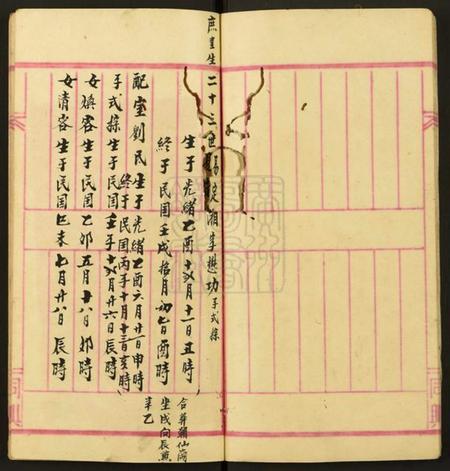 庶
生二十三世
字懋功 子式採
生于光緒乙酉十月十一日丑時
終于民国壬戌拾月初七日酉時
合葬
坐戌向辰兼
辛乙
配室劉氏生于光緒乙酉六月廿一日申時
終于民国丙子十月十三日亥時
子式採生于民国壬子十月廿六日辰時
女煥容生于民国乙卯五月十八日卯時
女清容生于民国己未七月廿八日辰時
同興